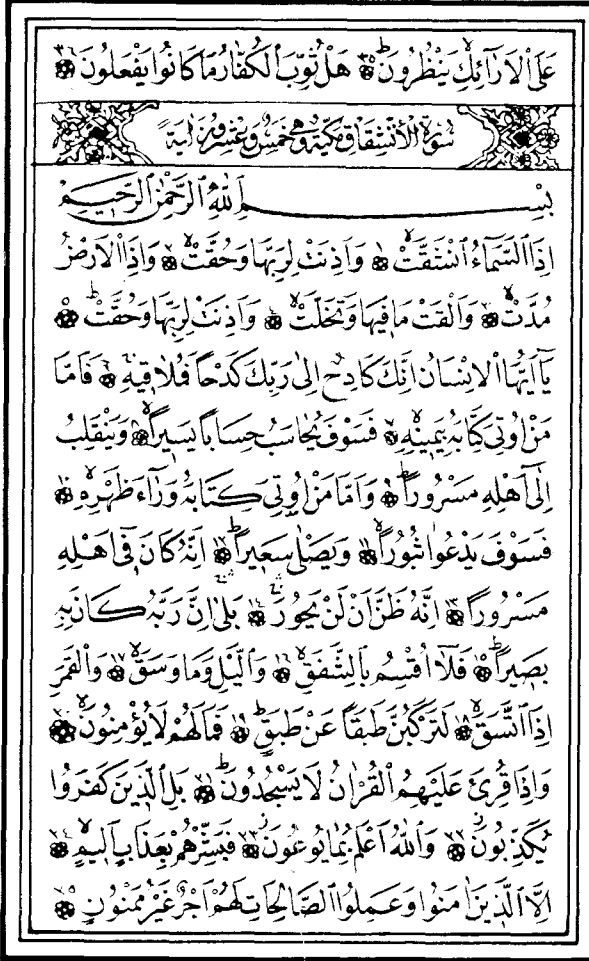 عَلَى الْاَرَٓائِكِ يَنْظُرُونَۜ ﴿٣٥﴾ هَلْ ثُوِّبَ الْكُفَّارُ مَا كَانُوا يَفْعَلُونَ ﴿٣٦﴾
سُورَةُ الْاِنْشِقَاقِ مَكِّيَّةٌ وَهِيَ خَمْسٌ وَعِشْرُونَ اٰيَةً
بِسْمِ اللّٰهِ الرَّحْمٰنِ الرَّحِيمِ
اِذَا السَّمَٓاءُ انْشَقَّتْۙ ﴿١﴾ وَاَذِنَتْ لِرَبِّهَا وَحُقَّتْۙ ﴿٢﴾ وَاِذَا الْاَرْضُ
مُدَّتْۙ ﴿٣﴾ وَاَلْقَتْ مَا فِيهَا وَتَخَلَّتْۙ ﴿٤﴾ وَاَذِنَتْ لِرَبِّهَا وَحُقَّتْۜ ﴿٥﴾
يَٓا اَيُّهَا الْاِنْسَانُ اِنَّكَ كَادِحٌ اِلٰى رَبِّكَ كَدْحًا فَمُلَاقِيهِۚ ﴿٦﴾ فَاَمَّا
مَنْ اُو۫تِيَ كِتَابَهُ بِيَمِينِهِۙ ﴿٧﴾ فَسَوْفَ يُحَاسَبُ حِسَابًا يَسِيرًاۙ ﴿٨﴾ وَيَنْقَلِبُ
اِلٰٓى اَهْلِهِ مَسْرُورًاۜ ﴿٩﴾ وَاَمَّا مَنْ اُو۫تِيَ كِتَابَهُ وَرَٓاءَ ظَهْرِهِۙ ﴿١٠﴾
فَسَوْفَ يَدْعُوا ثُبُورًاۙ ﴿١١﴾ وَيَصْلٰى سَعِيرًاۜ ﴿١٢﴾ اِنَّهُ كَانَ ف۪ٓي اَهْلِهِ
مَسْرُورًاۜ ﴿١٣﴾ اِنَّهُ ظَنَّ اَنْ لَنْ يَحُورَۚۛ ﴿١٤﴾ بَلٰىۚۛ اِنَّ رَبَّهُ كَانَ بِهِ
بَصِيرًاۜ ﴿١٥﴾ فَلَٓا اُقْسِمُ بِالشَّفَقِۙ ﴿١٦﴾ وَالَّيْلِ وَمَا وَسَقَۙ ﴿١٧﴾ وَالْقَمَرِ
اِذَا اتَّسَقَۙ ﴿١٨﴾ لَتَرْكَبُنَّ طَبَقًا عَنْ طَبَقٍۜ ﴿١٩﴾ فَمَا لَهُمْ لَا يُؤْمِنُونَۙ ﴿٢٠﴾
وَاِذَا قُرِئَ عَلَيْهِمُ الْقُرْاٰنُ لَا يَسْجُدُونَۜ ﴿٢١﴾ بَلِ الَّذِينَ كَفَرُوا
يُكَذِّبُونَۘ ﴿٢٢﴾ وَاللّٰهُ اَعْلَمُ بِمَا يُوعُونَۘ ﴿٢٣﴾ فَبَشِّرْهُمْ بِعَذَابٍ اَلِيمٍۙ ﴿٢٤﴾
اِلَّا الَّذِينَ اٰمَنُوا وَعَمِلُوا الصَّالِحَاتِ لَهُمْ اَجْرٌ غَيْرُ مَمْنُونٍ ﴿٢٥﴾